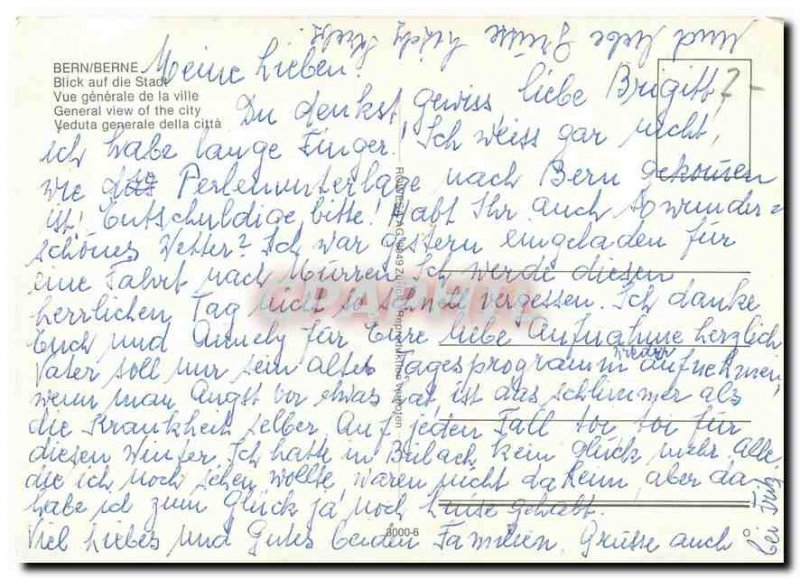 BERN/BERNE
Blick auf die Stadt
Vue générale de la ville
General view of the city
Veduta generale della città
Meine Lieben!
Du denkst gewiss liebe Brigitt,
ich habe lange Finger! Ich weiss gar nicht,
wie die Perlenunterlage nach Bern gekommen
ist! Entschuldige bitte! Habt Ihr auch so wunder-
schönes Wetter? Ich war gestern eingeladen für
eine Fahrt nach Mürren. Ich werde diesen
herrlichen Tag nicht so schnell vergessen. Ich danke
Euch und Annely für Eure liebe Aufnahme herzlich
Vater soll nur sein altes Tagesprogramm wieder aufnehmen,
wenn man Angst vor etwas hat ist das schlimmer als
die Krankheit selber. Auf jeden Fall toi toi für
diesen Winter. Ich hatte in Bribach kein Glück mehr. Alle
die ich noch sehen wollte waren nicht daheim, aber da
habe ich zum Glück ja noch gehabt.
Viel Liebes und Gutes beiden Familien. Grüsse auch
bei
und liebe Grüsse
3000-6